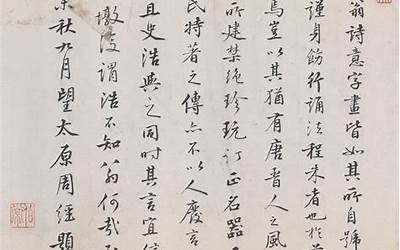 翁詩意字畫皆如其所自號
謹身飭行誦法程朱者也於首
焉豈以其猶有唐晉人之風
所建禁絶珍玩訂正名器
民特著之傳亦不以人廢言
且史浩與之同時其言宜信
墩復謂浩不知翁何哉
秋九月望太原周經題